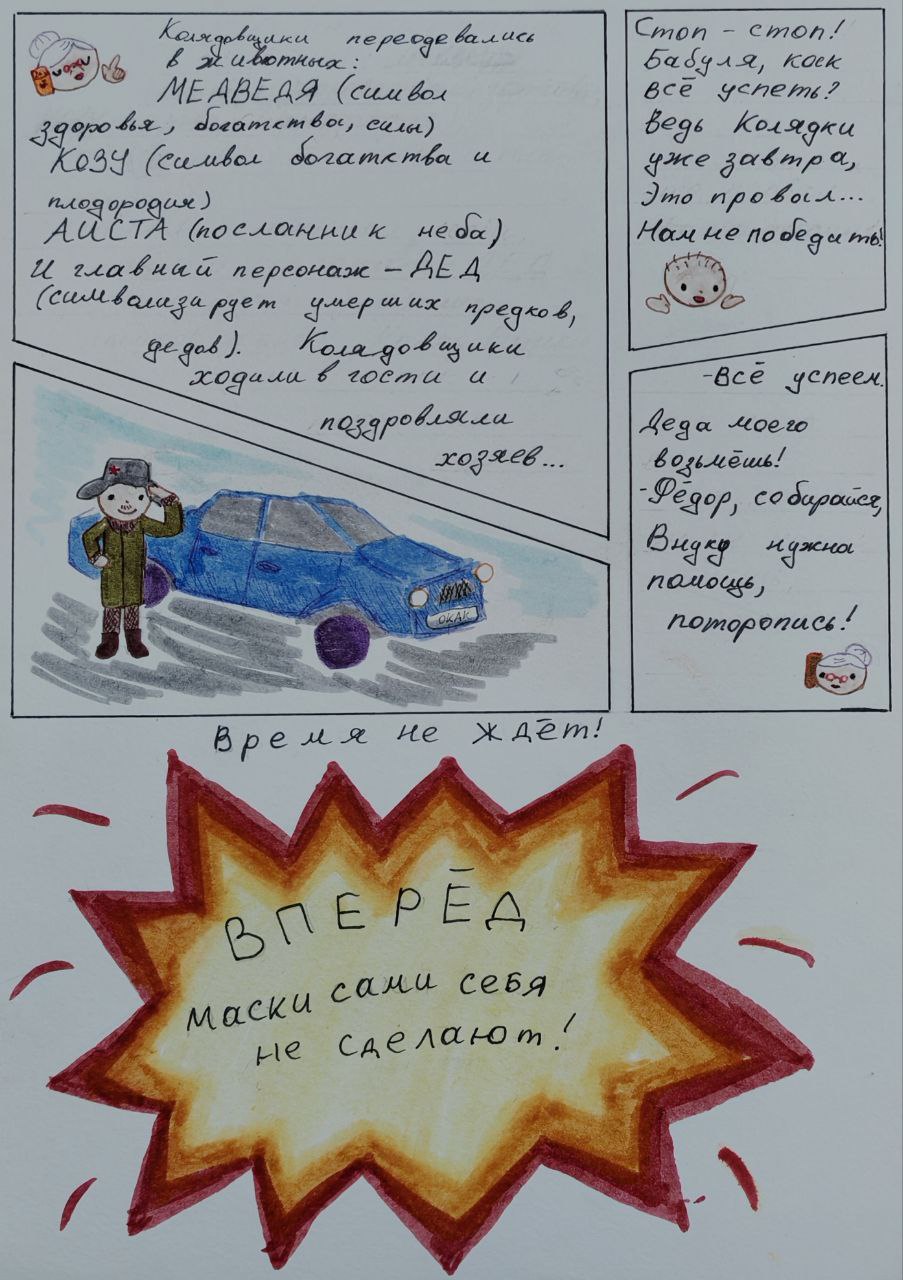 Колядовщики переодевались
в животных:
МЕДВЕДЯ (символ
здоровья, богатства, силы)
КОЗУ (символ богатства и
плодородия)
АИСТА (посланник неба)
И главный персонаж – ДЕД
(символизирует умерших предков,
дедов). Колядовщики
ходили в гости и
поздровляли
хозяев...
Стоп – стоп!
Бабуля, как
всё успеть?
Ведь Колядки
уже завтра,
Это провал...
Нам не победить!
ОКАК
-Всё успеем.
Деда моего
возьмёшь!
-Фёдор, собирайся,
Внуку нужна
помощь,
поторопись!
Время не ждёт!
ВПЕРЁД
маски сами себя
не сделают!